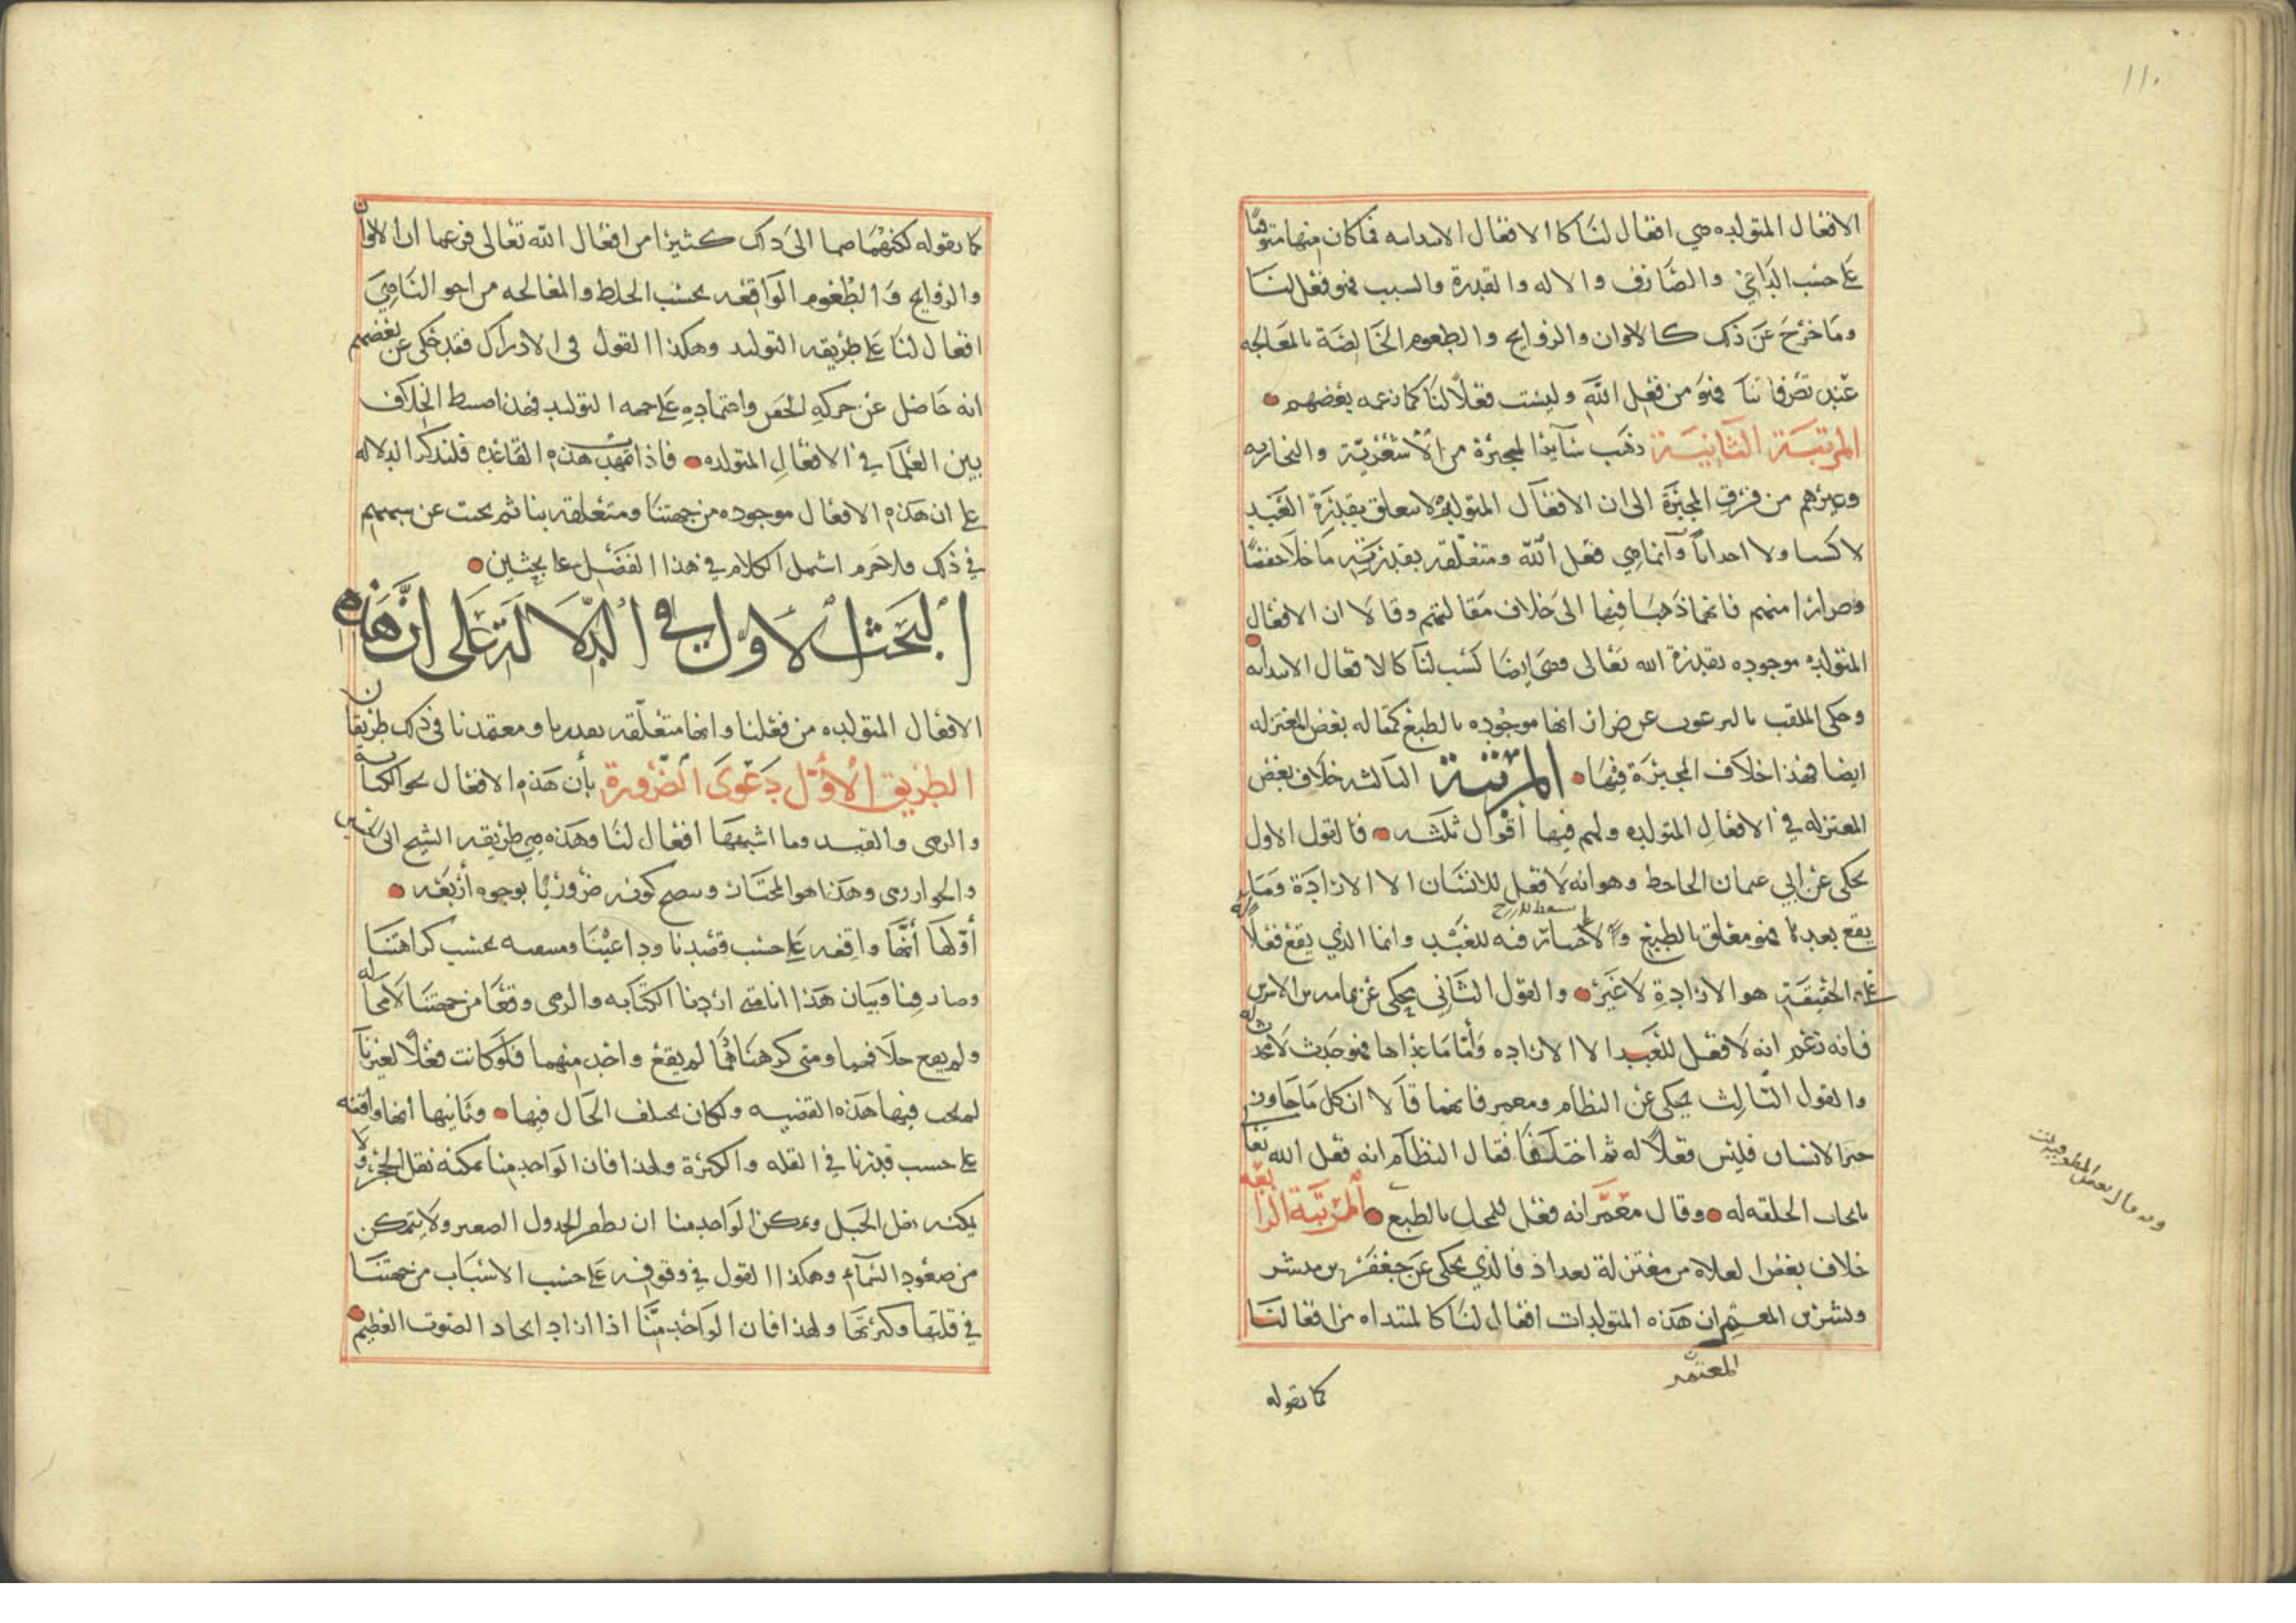 ١١٠
الافعال المتولده هي افعال لنا كالافعال الابتدائيه فما كان منها متوقفًا
على حسب الداعي والصارف والاله والقدرة والسبب فهو فعل لنا
وما خرج عن ذلك كالالوان والروايح والطعوم الحاصلة بالمعالجه
عند تصرفاتنا فهو من فعل الله وليست فعلًا لنا كما زعمه بعضهم
المرتبة الثانية ذهب سائر المجبرة من الاشعرية والنجاريه
وغيرهم من فرق المجبرة الى ان الافعال المتولده لا تتعلق بقدرة العبد
لا كسبا ولا احداثا وانما هي فعل الله ومتعلقه بقدرته ما خلا حفصًا
وضرارا منهم فانهما ذهبا فيها الى خلاف مقالتهم وقالا ان الافعال
المتولده موجوده بقدرة الله تعالى وهي ايضا كسب لنا كالافعال الابتدائيه
وحكى الملقب بالبرعوث عن ضرار انها موجوده بالطبع كمقاله بعض المعتزله
ايضا فهذا خلاف المجبرة فيها المرتبة الثالثه خلاف بعض
المعتزله في الافعال المتولده ولهم فيها اقوال ثلثه فالقول الاول
يحكى عن ابي عثمان الجاحظ وهو انه لا فعل للانسان الا الارادة وما
يقع بعدها فهو متعلق بالطبع ولا اختيار فيه للعبد وانما الذي يقع فعلًا له
على الحقيقة هو الارادة لا غير والقول الثاني يحكى عن ثمامه بن الاشرس
فانه زعم انه لا فعل للعبد الا الاراده واما ما عداها فهو حدث لا محدث له
والقول الثالث يحكى عن النظام ومعمر فانهما قالا ان كل ما جاوز
حيز الانسان فليس فعلًا له ثم اختلفا فقال النظام انه فعل الله تعالى
بايجاب الخلقه له وقال معمر انه فعل للمحل بالطبع المرتبة الرابعه
خلاف بعض الغلاه من معتزلة بغداد فالذي يحكى عن جعفر بن مبشر
وبشر بن المعتمر ان هذه المتولدات افعال لنا كالمبتداه من افعالنا
المعتمر
كما نقوله
كما نقوله لكنهما ضما الى ذلك كثيرًا من افعال الله تعالى فزعما ان الالوان
والروايح والطعوم الواقعه بحسب الخلط والمعالجه من احوالنا هي
افعال لنا على طريقه التوليد وهكذا القول في الادراك فقد حكى عن بعضهم
انه حاصل عن حركه الجفن واعتماده على جهه التوليد فهذا ضبط الخلاف
بين العلما في الافعال المتولده فاذا تمهدت هذه القاعده فلنذكر الدلاله
على ان هذه الافعال موجوده من جهتنا ومتعلقه بنا ثم نجيب عن شبههم
في ذلك فلا جرم اشتمل الكلام في هذا الفصل على بحثين
البحث الاول في الدلالة على ان هذه
الافعال المتولده من فعلنا وانها متعلقه بقدرنا ومعتمدنا في ذلك طريقان
الطريق الاول دعوى الضرورة بأن هذه الافعال نحو الكتابة
والرمي والقيد وما اشبهها افعال لنا وهذه هي طريقه الشيخ ابي الحسين
والخوارزمي وهذا هو المختار ويتضح كونه ضروريًا بوجوه أربعه
أولها أنها واقعه على حسب قصدنا وداعينا ومنتفيه بحسب كراهتنا
وصارفنا وبيان هذا انا متى اردنا الكتابه والرمي وقعا من جهتنا لا محاله
ولم يقع خلافهما ومتى كرهناهما لم يقع واحد منهما فلو كانت فعلًا لغيرنا
لم تجب فيها هذه القضيه ولكان يختلف الحال فيها وثانيها انها واقعه
على حسب قدرنا في القله والكثرة ولهذا فان الواحد منا يمكنه نقل الحجر ولا
يمكنه نقل الجبل ويمكن الواحد منا ان يطفر الجدول الصغير ولا يتمكن
من صعود السماء وهكذا القول في وقوفه على حسب الاسباب من جهتنا
في قلتها وكثرتها ولهذا فان الواحد منا اذا اراد ايجاد الصوت العظيم